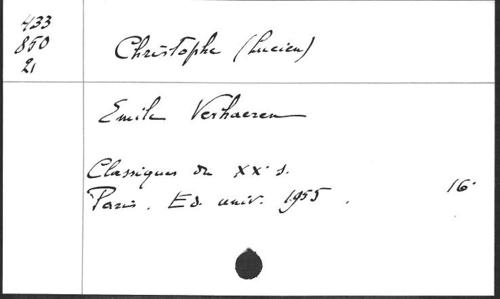 433
850
21
Christophe (Lucien)
Emile Verhaeren
Classiques du XXe s.
Paris. Ed. univ. 1955. 16°